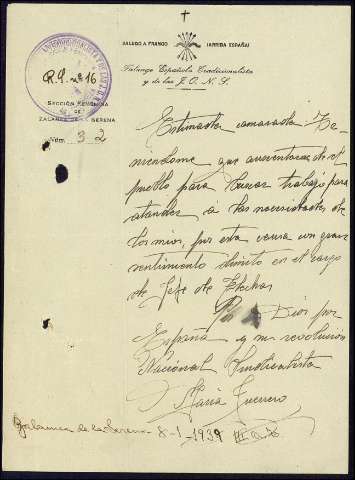 SALUDO A FRANCO ¡ARRIBA ESPAÑA!
R.S. nº 16
Falange Española Tradicionalista
y de las J. O. N. S.
SECCIÓN FEMENINA
DE
ZALAMEA DE LA SERENA
Núm. 32
Estimada camarada: Te-
niendome que ausentar de el
pueblo para buscar trabajo para
atender á las necesidades de
los mios, por esta causa con gran
sentimiento dimito en el cargo
de Jefe de Flechas
Por Dios por
España y su revolucion
Nacional Sindicalista
Maria Guerrero
Zalamea de la Serena 8-1-1939 III A. T.